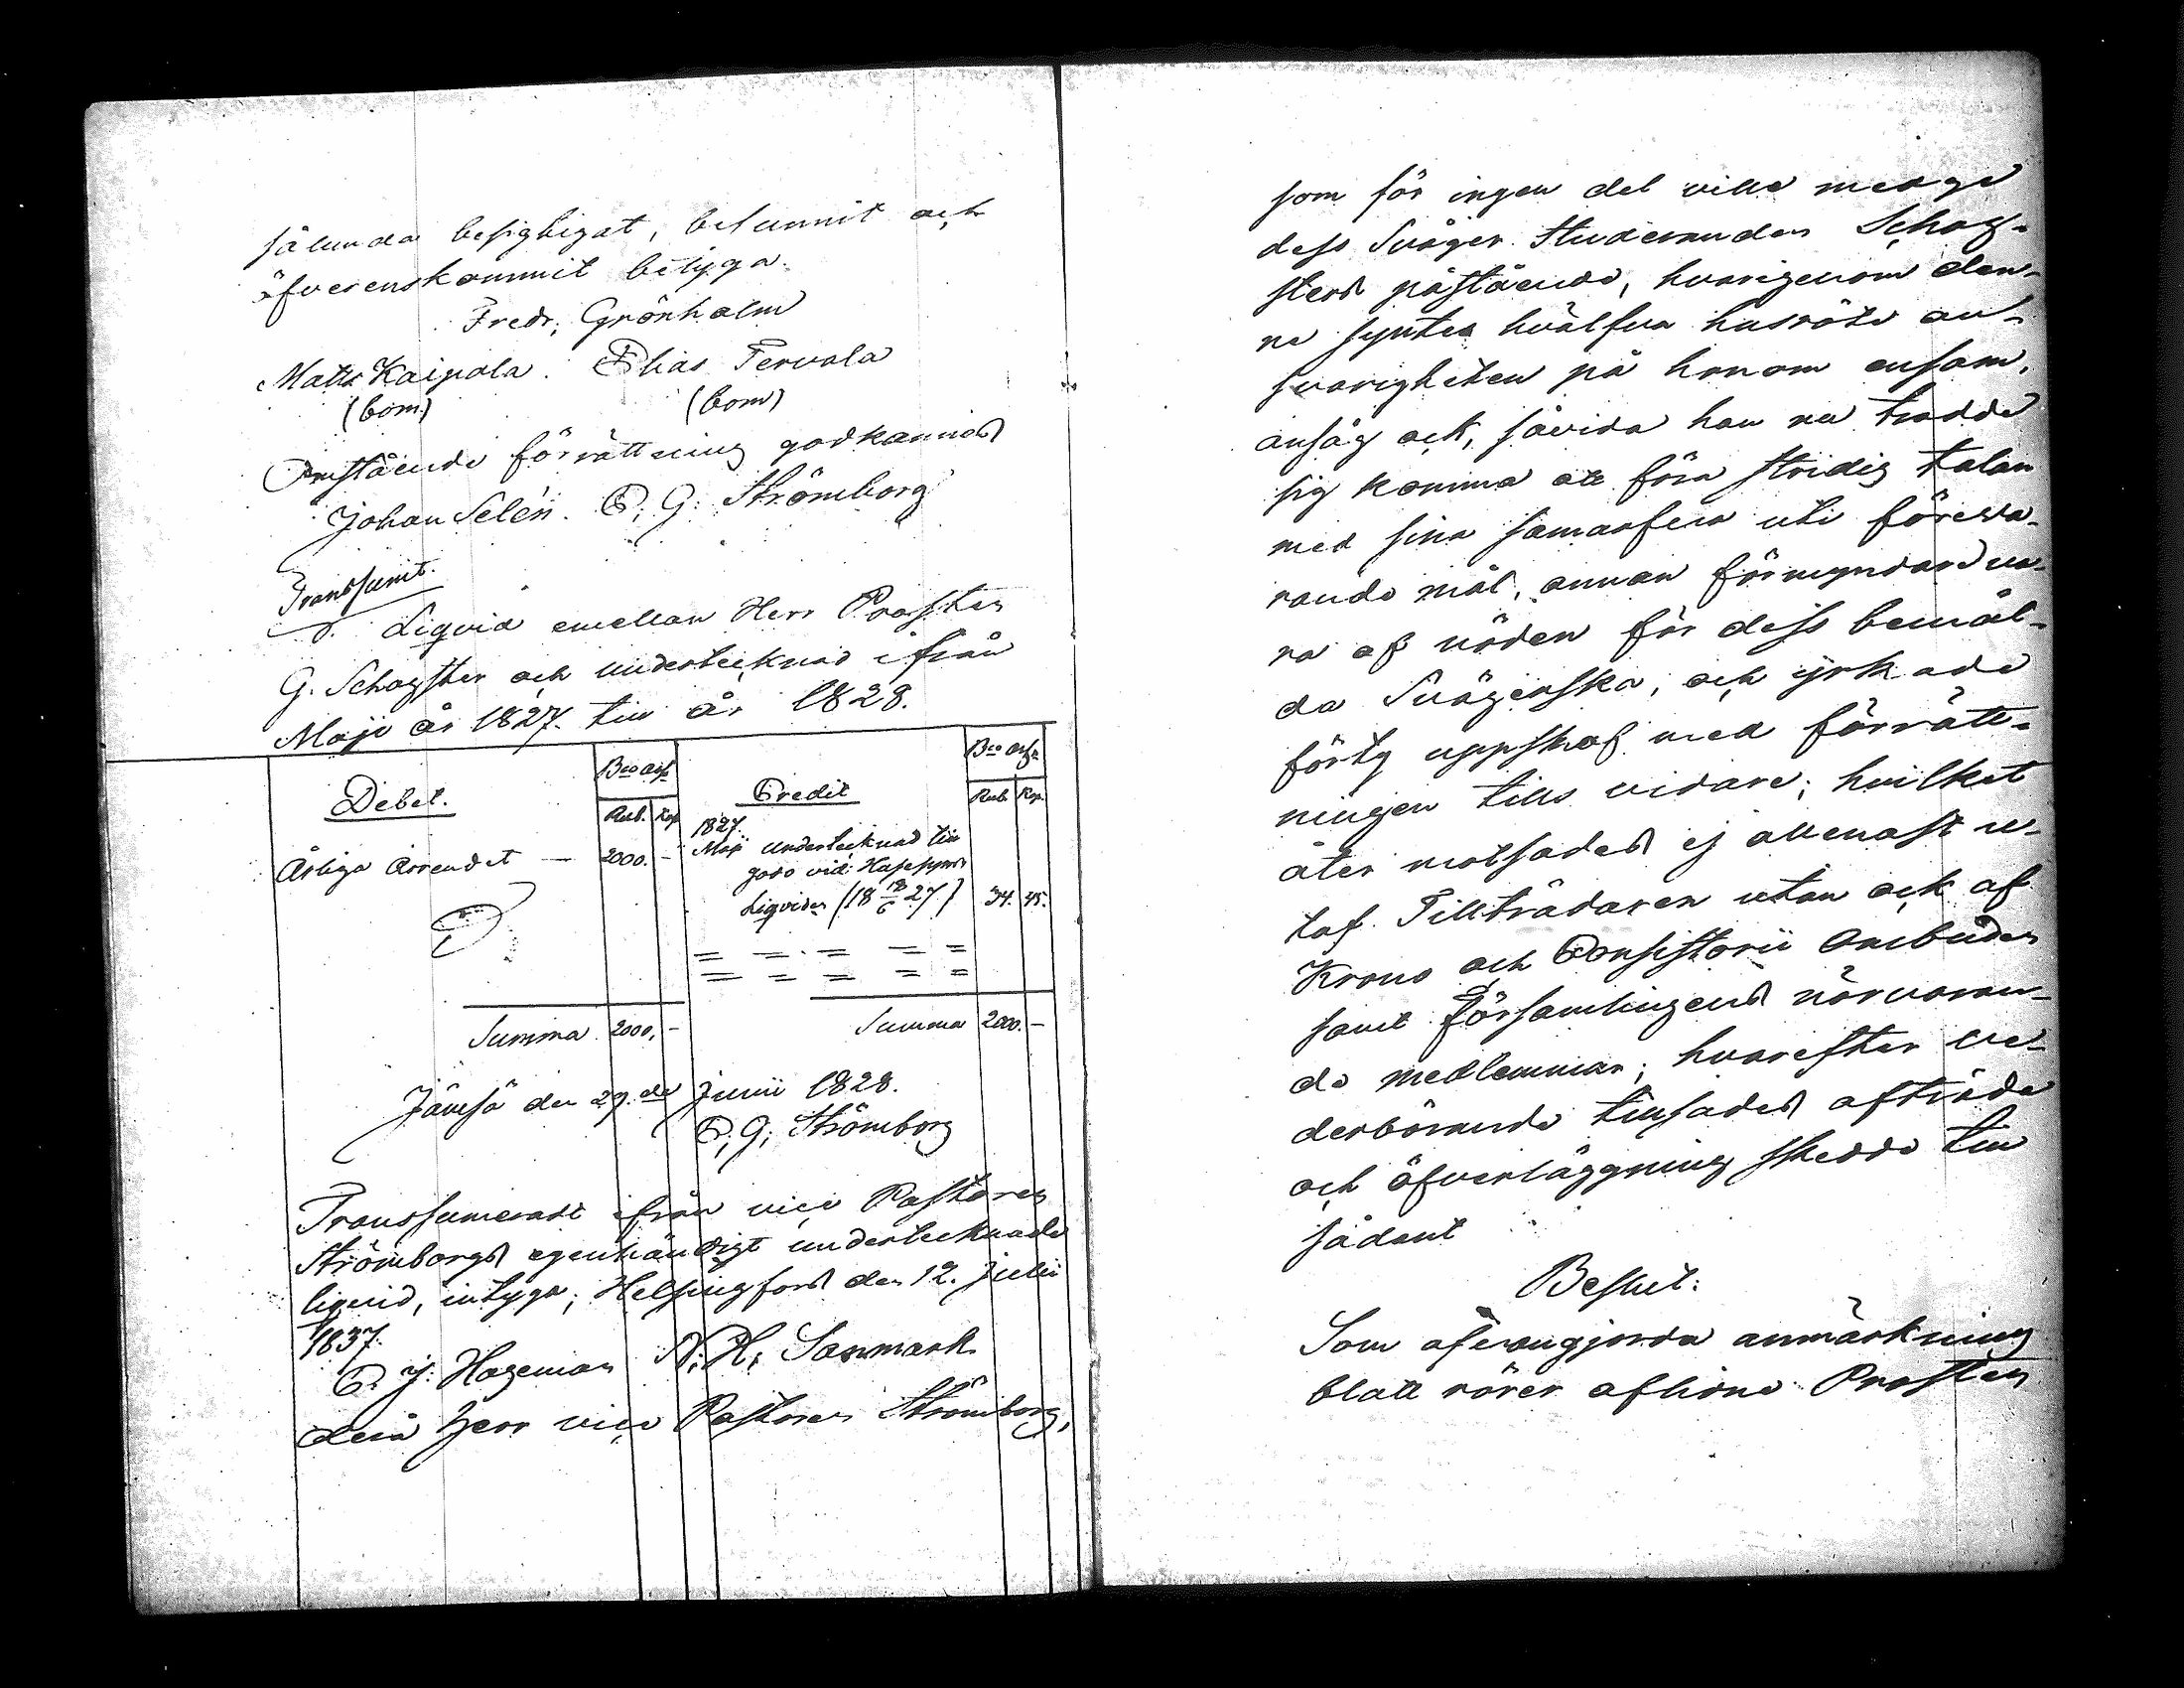 sålunda besigtigat, befunnit och
öfverenskommit betyga.
Fredr. Grönholm
Matts Kaipola. Elias Tervala
(bom.) (bom)
Omstående förrättning godkännes
Johan Selén. C. G. Strömborg
Transsumt.
Liqvid emellan Herr Prosten
G. Schogster och undertecknad ifrån
Maji år 1827. till år 1828.
Debet. Bco ass. Credit Bco ass.
Rub. Kop. Rub. Kop.
1827.
Årliga Arrendet — 2000. - Maji undertecknad till
godo vid
Liqviden (18 18/6 27) 34. 45.
= = = = =
= = = = =
Summa 2000. - Summa 2000. -
Jämsä den 27.de Junii 1828.
C. G. Strömborg
Transsumeradt ifrån vice Pastoren
Strömborgs egenhändigt undertecknade
liqvid, intyga; Helsingfors den 12. Julii
1837.
C. J. Hageman N. H. Sanmark
dem Herr vice Pastoren Strömborg,
som för ingen del ville medge
dess Svåger Studeranden Schog-
sters påstående, hvarigenom den-
ne syntes hvälfva husröte an-
svarigheten på honom ensam,
ansåg ock, såvida han nu trodde
sig komma att föra stridig talan
med sina samarfvin uti föreva-
rande mål, annan förmyndare va-
ra af nöden för dess bemäl-
da Svägerska, och yrkade
förty uppskof med förrätt-
ningen tills vidare; hvilket
åter motsades ej allenast u-
taf Tillträdaren utan ock af
Krono och Consistorii Ombuden
samt Församlingens närvaran-
de medlemmar; hvarefter ve-
derbörande tillsades afträda
och öfverläggning skedde till
sådant
Beslut:
Som ofvangjorda anmärkning
blott rörer aflidne Prosten